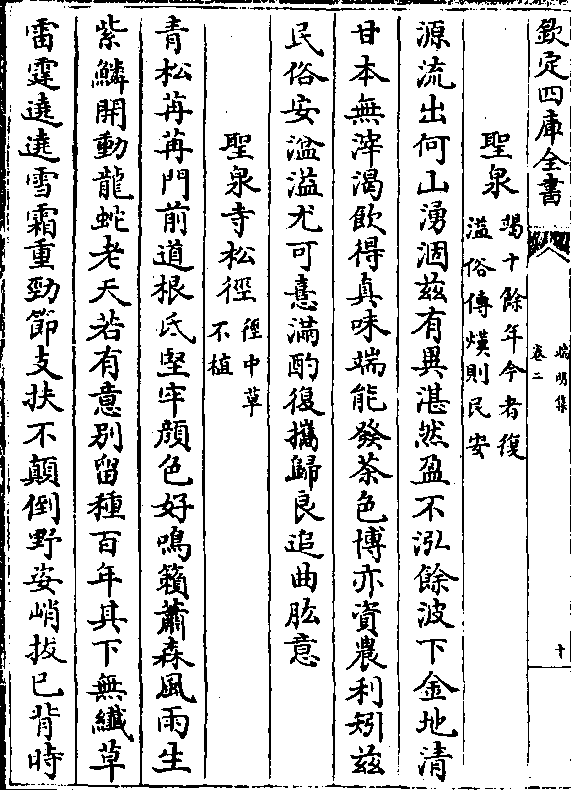 欽定四庫全書
端明集
卷二
十
聖泉
竭十餘年今者復
溢俗傳則民安
源流出何山湧涸茲有異湛然盈不泓餘波下金地清
甘本無滓渴飲得真味端能發茶色博亦資農利矧茲
民俗安湓溢尤可憙滿酌復攜歸良追曲肱意
聖泉寺松徑
徑中草
不植
青松苒苒門前道根氐堅牢顔色好鳴籟蕭森風雨生
紫鱗開動龍蛇老天若有意別留種百年其下無纖草
雷霆遶遶雪霜重勁節支扶不顛倒野姿峭拔已背時